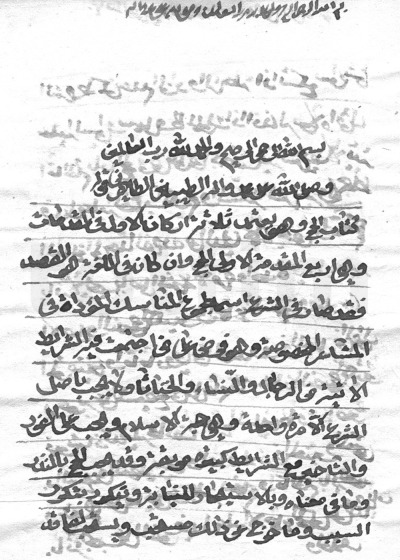 بسم الله الرحمن الرحيم والحمد لله رب العالمين
وصلى الله على محمد واله الطيبين الطاهرين
كتاب الحج وهو يعتمد ثلاثة اركان الاول في المقدمات
وهي اربع المقدمة الاولى الحج وان كان في اللغة القصد
فقد صار في الشرع اسما لمجموع المناسك المؤداة في
المشاعر المخصوصة وهو فرض على من اجتمعت فيه الشرايط
الاتية من الرجال والنساء والخناثا ولا يجب باصل
الشرع الا مرة واحدة وهي حجة الاسلام ويجب على الفور
والتاخير مع الشرايط كبيرة موبقة وقد يجب الحج بالنذر
وما في معناه وبالاستيجار للنيابة ويتكرر بتكرر
السبب وما خرج عن ذلك مستحب ويستحب لفاقد